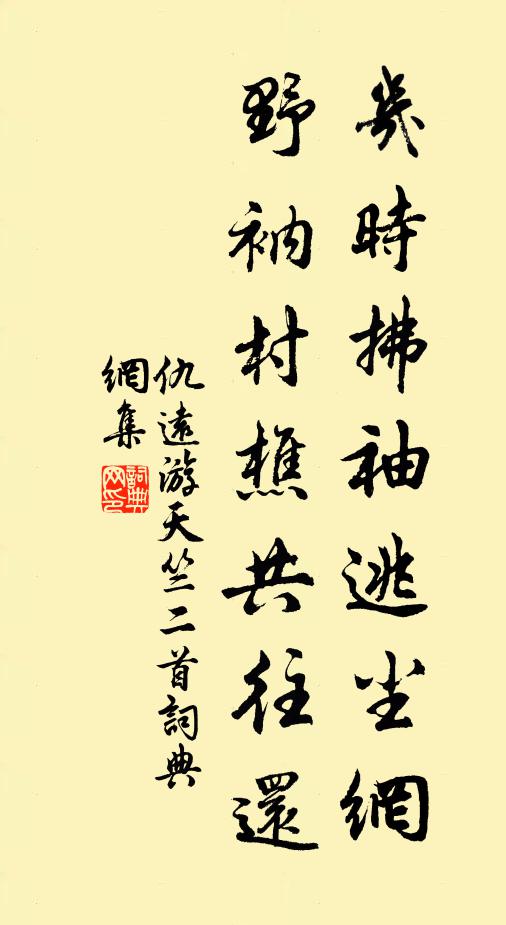 幾時拂袖逃尘網
野衲村樵共往還
仇遠游天竺二首詞典
網集
詞典網印